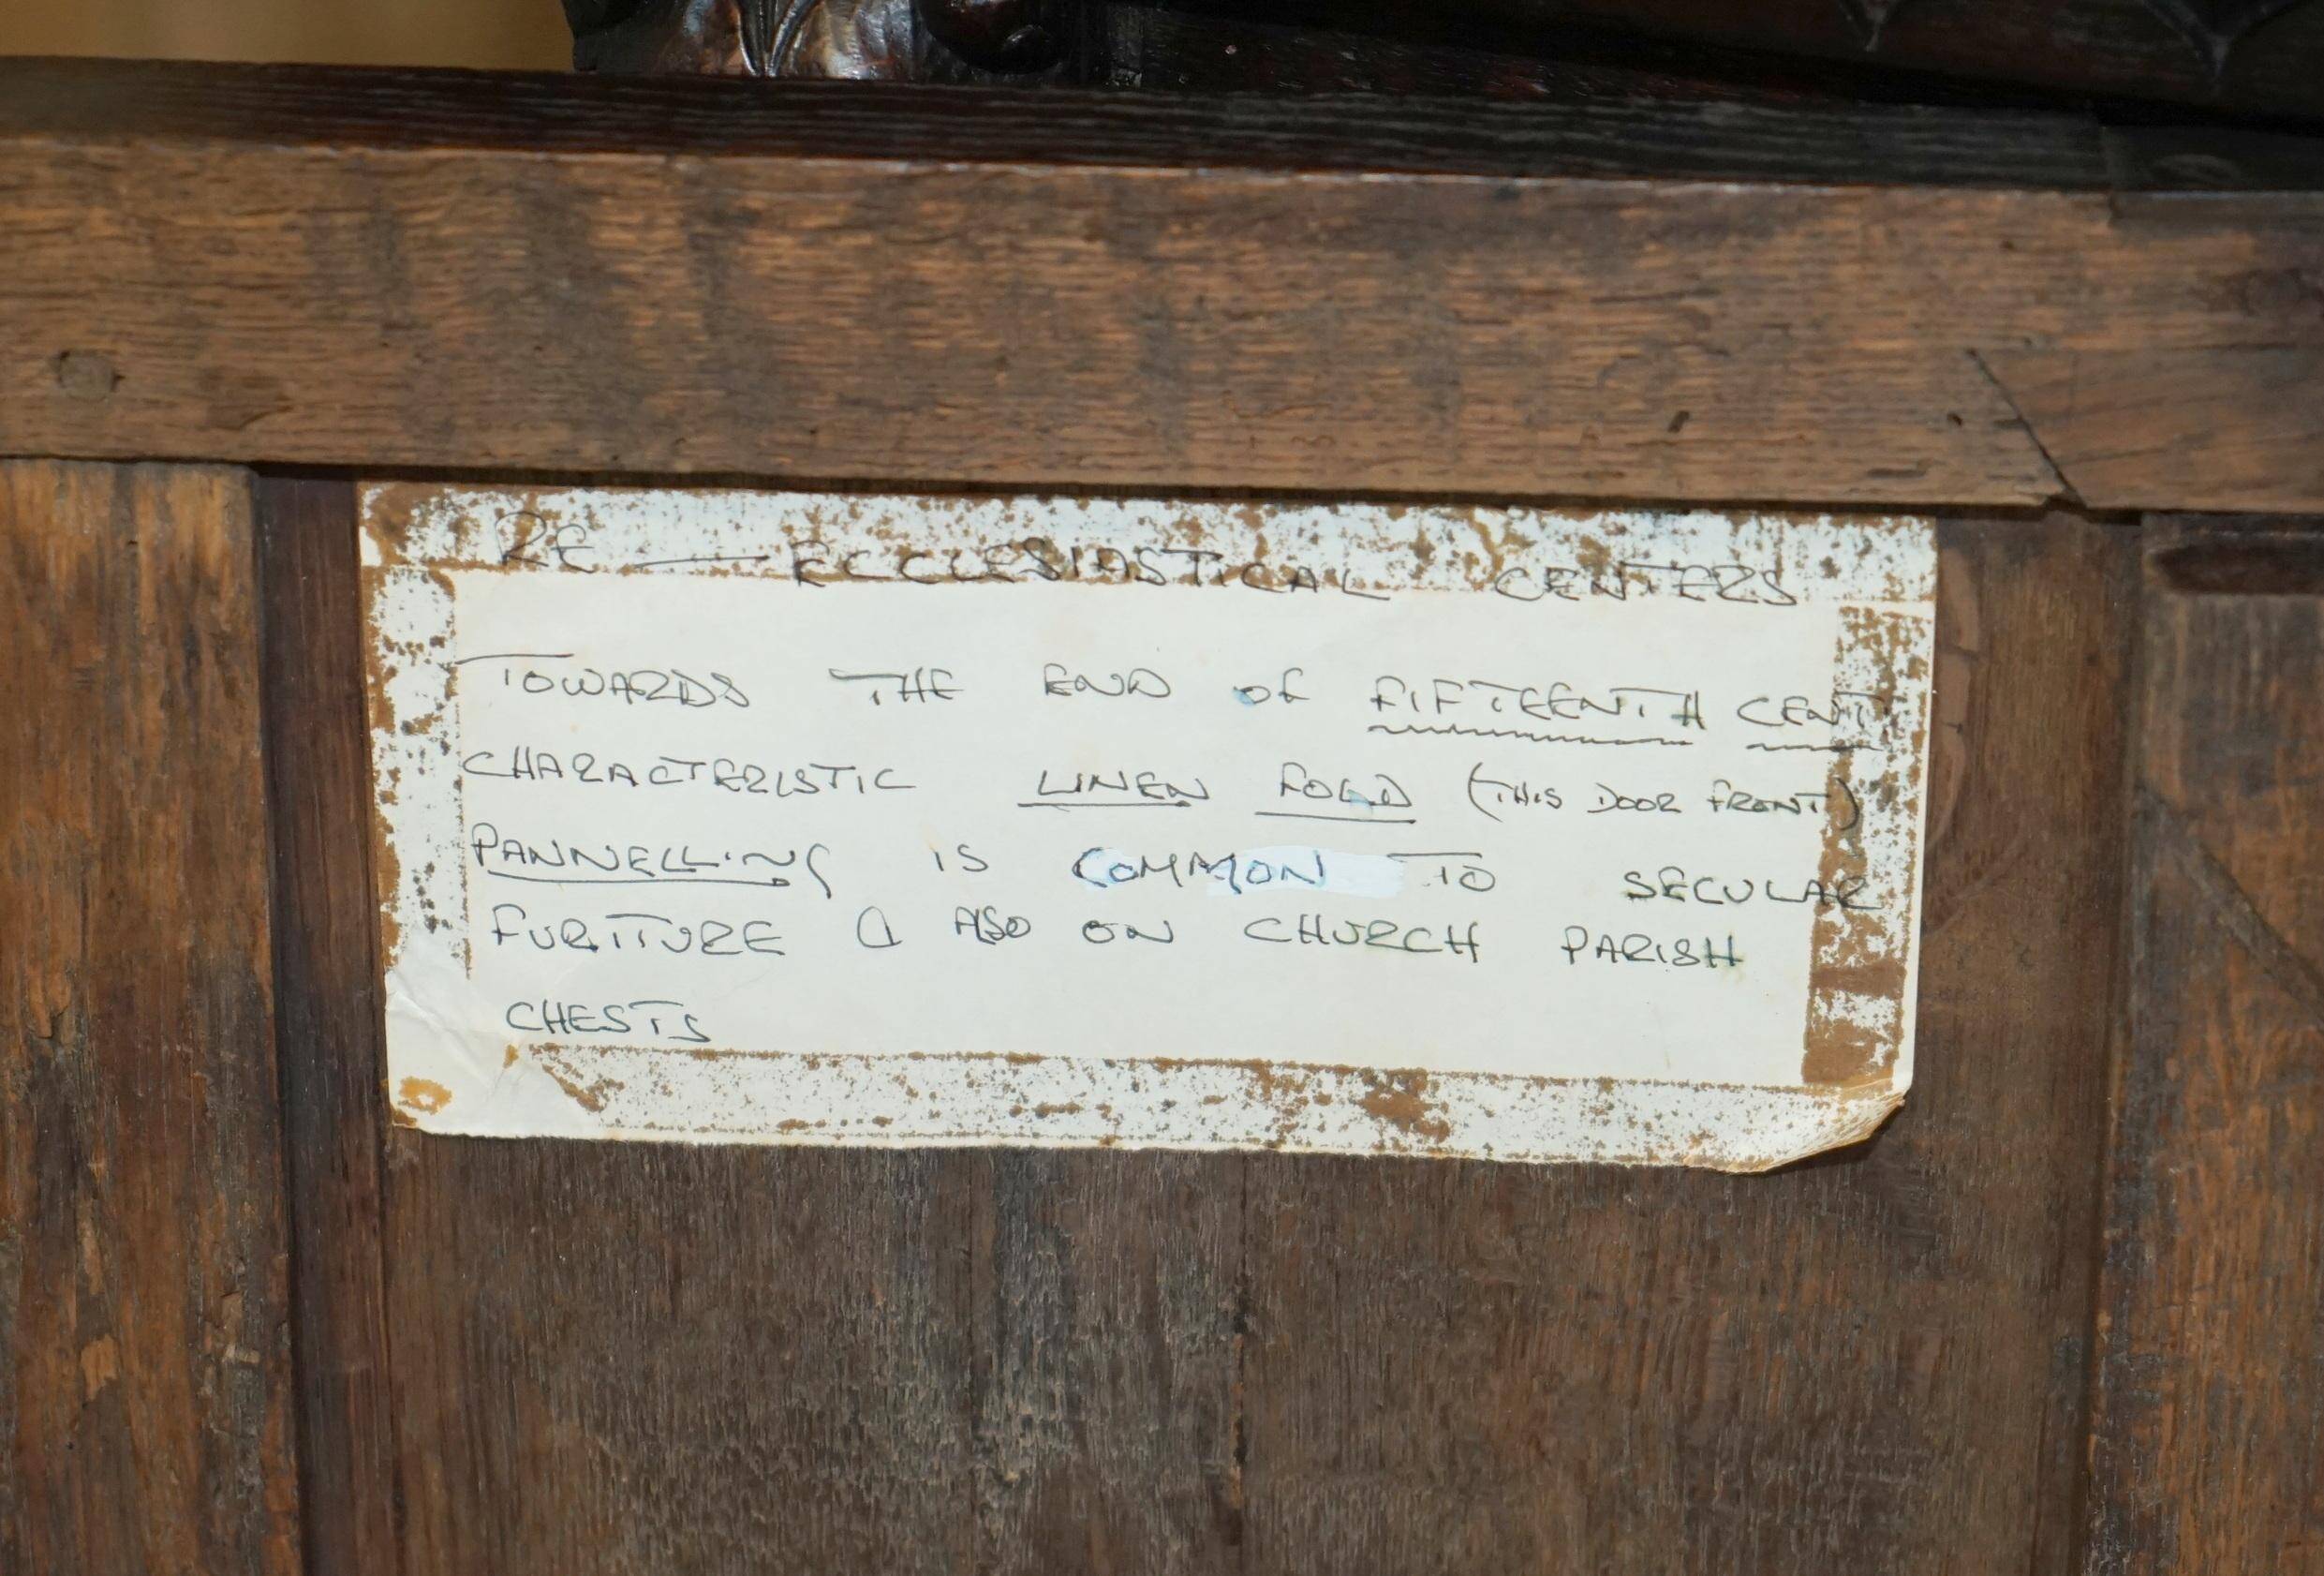 RE — ECCLESIASTICAL CENTERS
TOWARDS THE END OF FIFTEENTH CENT
CHARACTERISTIC LINEN FOLD (THIS DOOR FRONT)
PANNELLING IS COMMON TO SECULAR
FURITURE & ALSO ON CHURCH PARISH
CHESTS